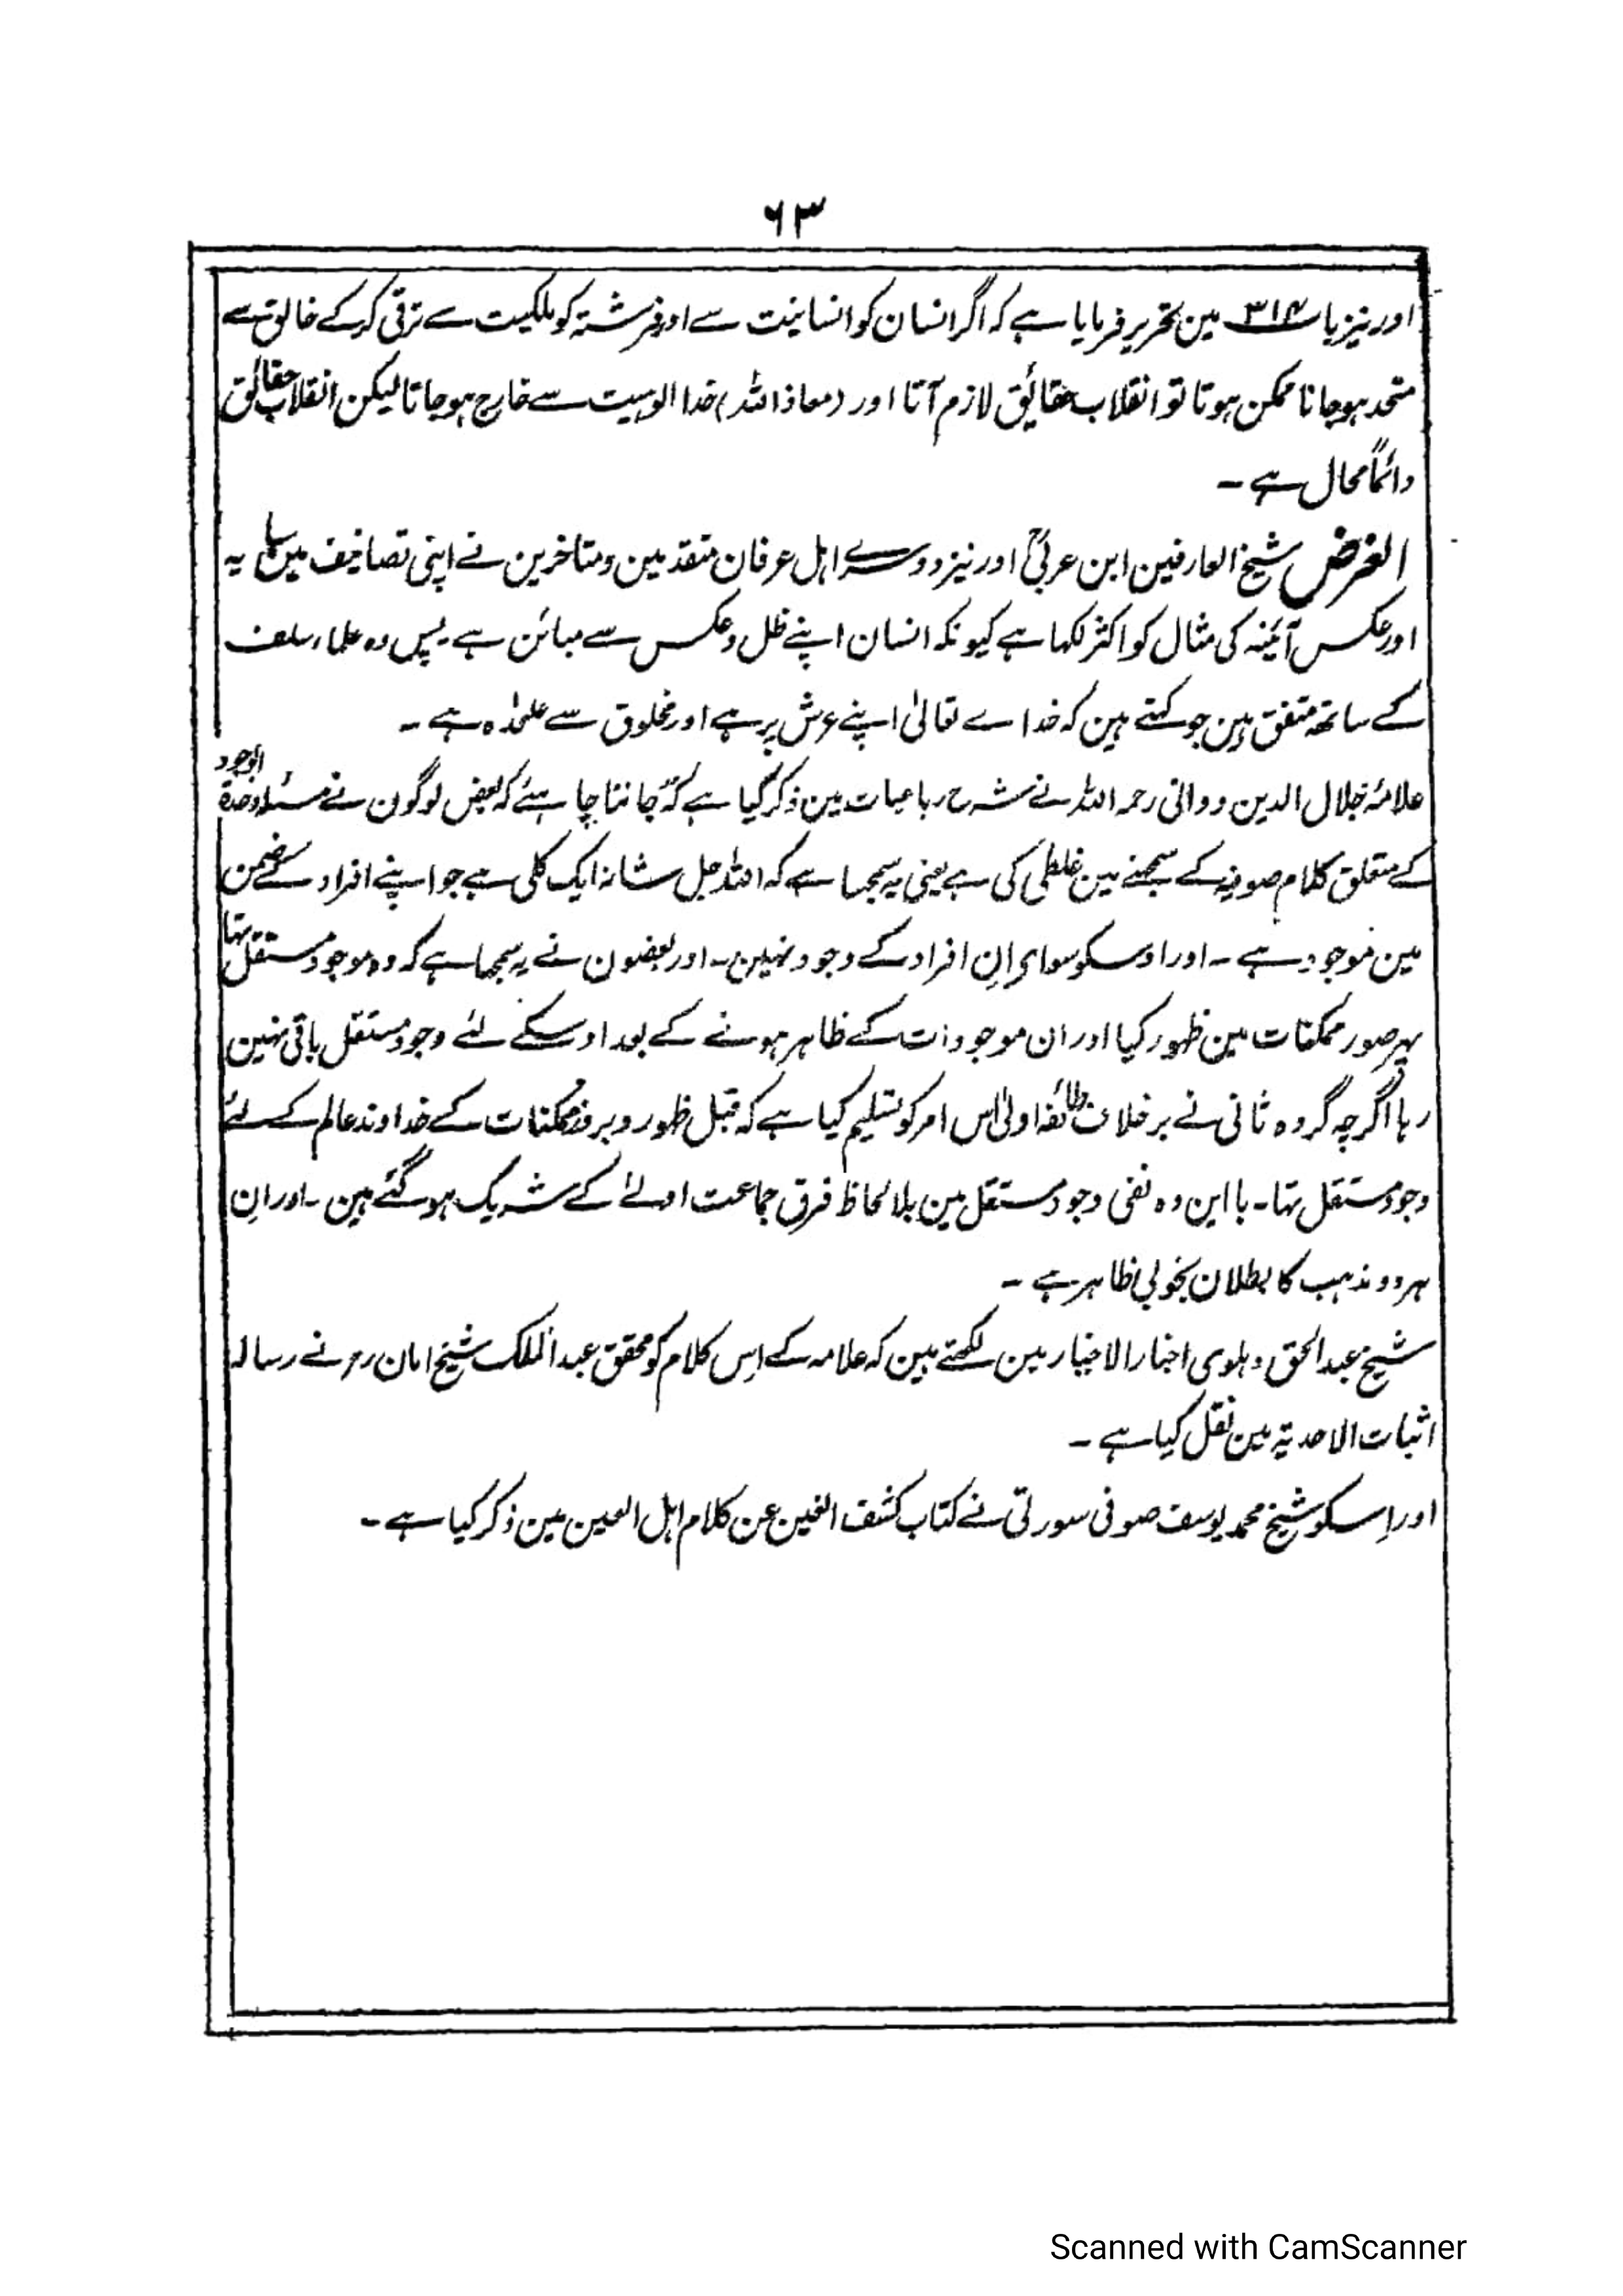 ۶۳
اور نیز باب ۳۱۴ مین تحریر فرمایا ہے کہ اگر انسان کو انسانیت سے اور فرشتہ کو ملکیت سے ترقی کرکے خالق سے
متحد ہوجانا ممکن ہوتا تو انقلاب حقائق لازم آتا اور (معاذ اللہ) خدا الوہیت سے خارج ہوجاتا لیکن انقلاب حقائق
دائماً محال ہے ۔
الغرض شیخ العارفین ابن عربیؒ اور نیز دوسرے اہل عرفان متقدمین و متاخرین نے اپنی تصانیف مین سایہ
اور عکس آئینہ کی مثال کو اکثر لکھا ہے کیونکہ انسان اپنے ظل و عکس سے مبائن ہے پس وہ علماء سلف
کے ساتھ متفق ہین جو کہتے ہین کہ خداے تعالیٰ اپنے عرش پر ہے اور مخلوق سے علٰحدہ ہے ۔
علامۂ جلال الدین دوانی رحمہ اللہ نے شرح رباعیات مین ذکر کیا ہے کہ جاننا چاہئے کہ بعض لوگون نے مسئلہ وحدۃ الوجود
کے متعلق کلام صوفیہ کے سمجھنے مین غلطی کی ہے یعنی یہ سمجہا ہے کہ اللہ جل شانہ ایک کلی ہے جو اپنے افراد کے ضمن
مین موجود ہے ۔ اور اوسکو سوای اِن افراد کے وجود نہین ۔ اور بعضون نے یہ سمجہا ہے کہ وہ موجود مستقل تہا
پہر صور ممکنات مین ظہور کیا اور ان موجودات کے ظاہر ہونے کے بعد اوسکے لئے وجود مستقل باقی نہین
رہا اگرچہ گروہ ثانی نے برخلاف طائفہ اولیٰ اس امر کو تسلیم کیا ہے کہ قبل ظہور و بروز ممکنات کے خداوند عالم کے لئے
وجود مستقل تہا ۔ با این وہ نفی وجود مستقل مین بلا لحاظ فرق جماعت اولے کے شریک ہوگئے ہین ۔ اور اِن
ہر دو مذہب کا بطلان بخوبی ظاہر ہے ۔
شیخ عبد الحق دہلوی اخبار الاخیار مین لکھتے ہین کہ علامہ کے اِس کلام کو محقق عبد الملک شیخ امان رح نے رسالہ
اثبات الاحدیۃ مین نقل کیا ہے ۔
اور اِسکو شیخ محمد یوسف صوفی سورتی نے کتاب کشف الغین عن کلام اہل العین مین ذکر کیا ہے ۔
Scanned with CamScanner